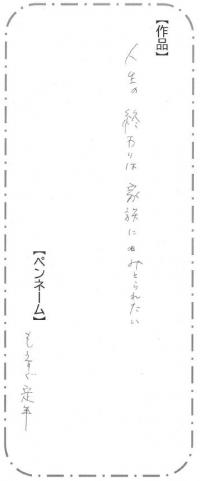 【作品】
人生の終わりは家族にみとられたい
【ペンネーム】
もうすぐ定年